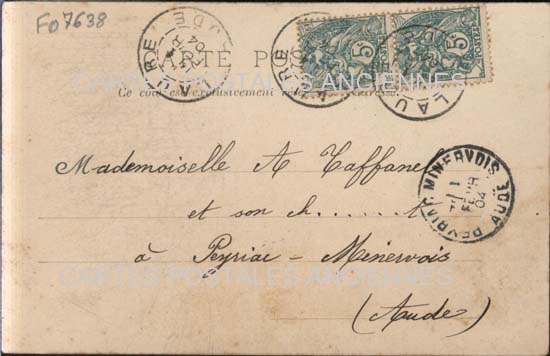 Fo7638
CARTE POSTALE
Ce côté est exclusivement réservé à l'adresse
LAURE AUDE
5 5
CARTES POSTALES ANCIENNES
Mademoiselle A Taffanel
et son ch......t
à Peyriac - Minervois
(Aude)
PEYRIAC MINERVOIS AUDE
1 FEVR 04
CARTES POSTALES ANCIENNES